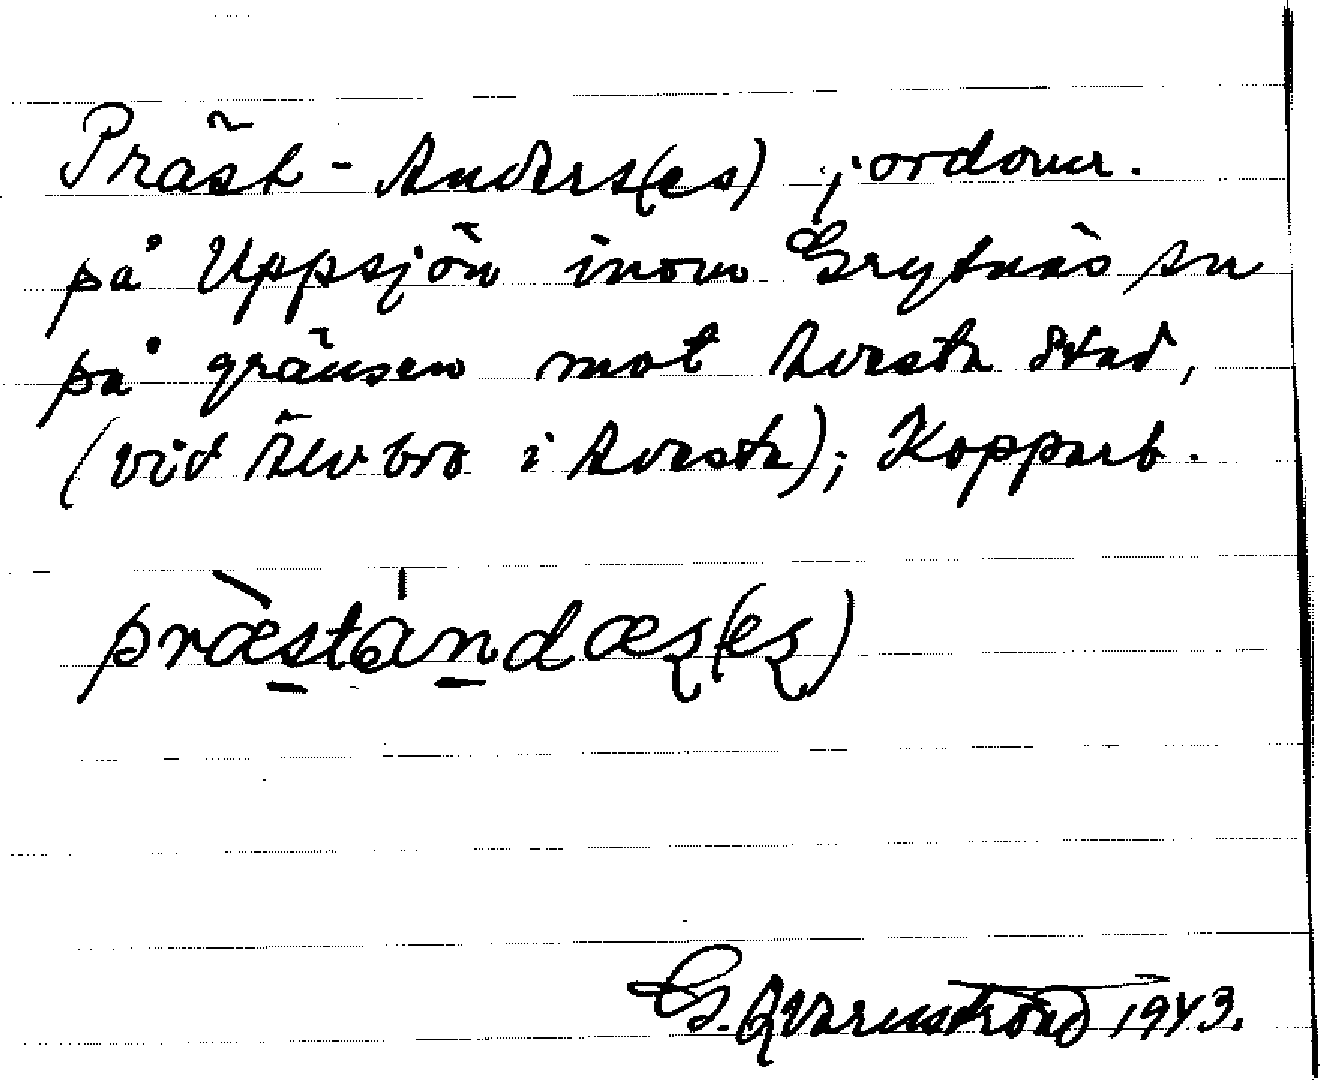 Präst-Anders(es) jordomr.
på Uppsjön inom Grytnäs sn
på gränsen mot Avesta stad,
(vid Älvbro i Avesta); Kopparb.
præstandæʂ(eʂ)
G. Qvarnström 1943.